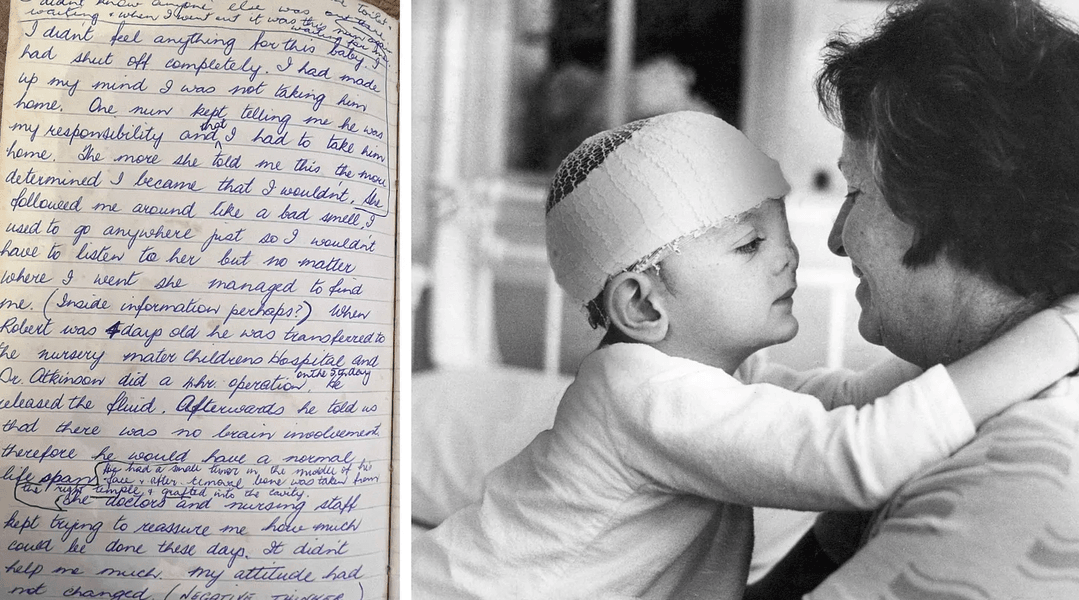 I didn't know anyone else was out there
waiting & when I went out it was this nun
waiting for me
I didn't feel anything for this baby. I
had shut off completely. I had made
up my mind I was not taking him
home. One nun kept telling me he was
my responsibility and that I had to take him
home. The more she told me this the more
determined I became that I wouldn't. She
followed me around like a bad smell. I
used to go anywhere just so I wouldn't
have to listen to her but no matter
where I went she managed to find
me. (Inside information perhaps?) When
Robert was 4 days old he was transferred to
the nursery mater Childrens Hospital and
Dr. Atkinson did a hr. operation on the 5th day. He
released the fluid. Afterwards he told us
that there was no brain involvement
therefore he would have a normal
life span. (He had a small tumor in the middle of his
face & after removal bone was taken from
the right temple & grafted into the cavity.)
The doctors and nursing staff
kept trying to reassure me how much
could be done these days. It didn't
help me much. My attitude had
not changed. (NEGATIVE THINKER)